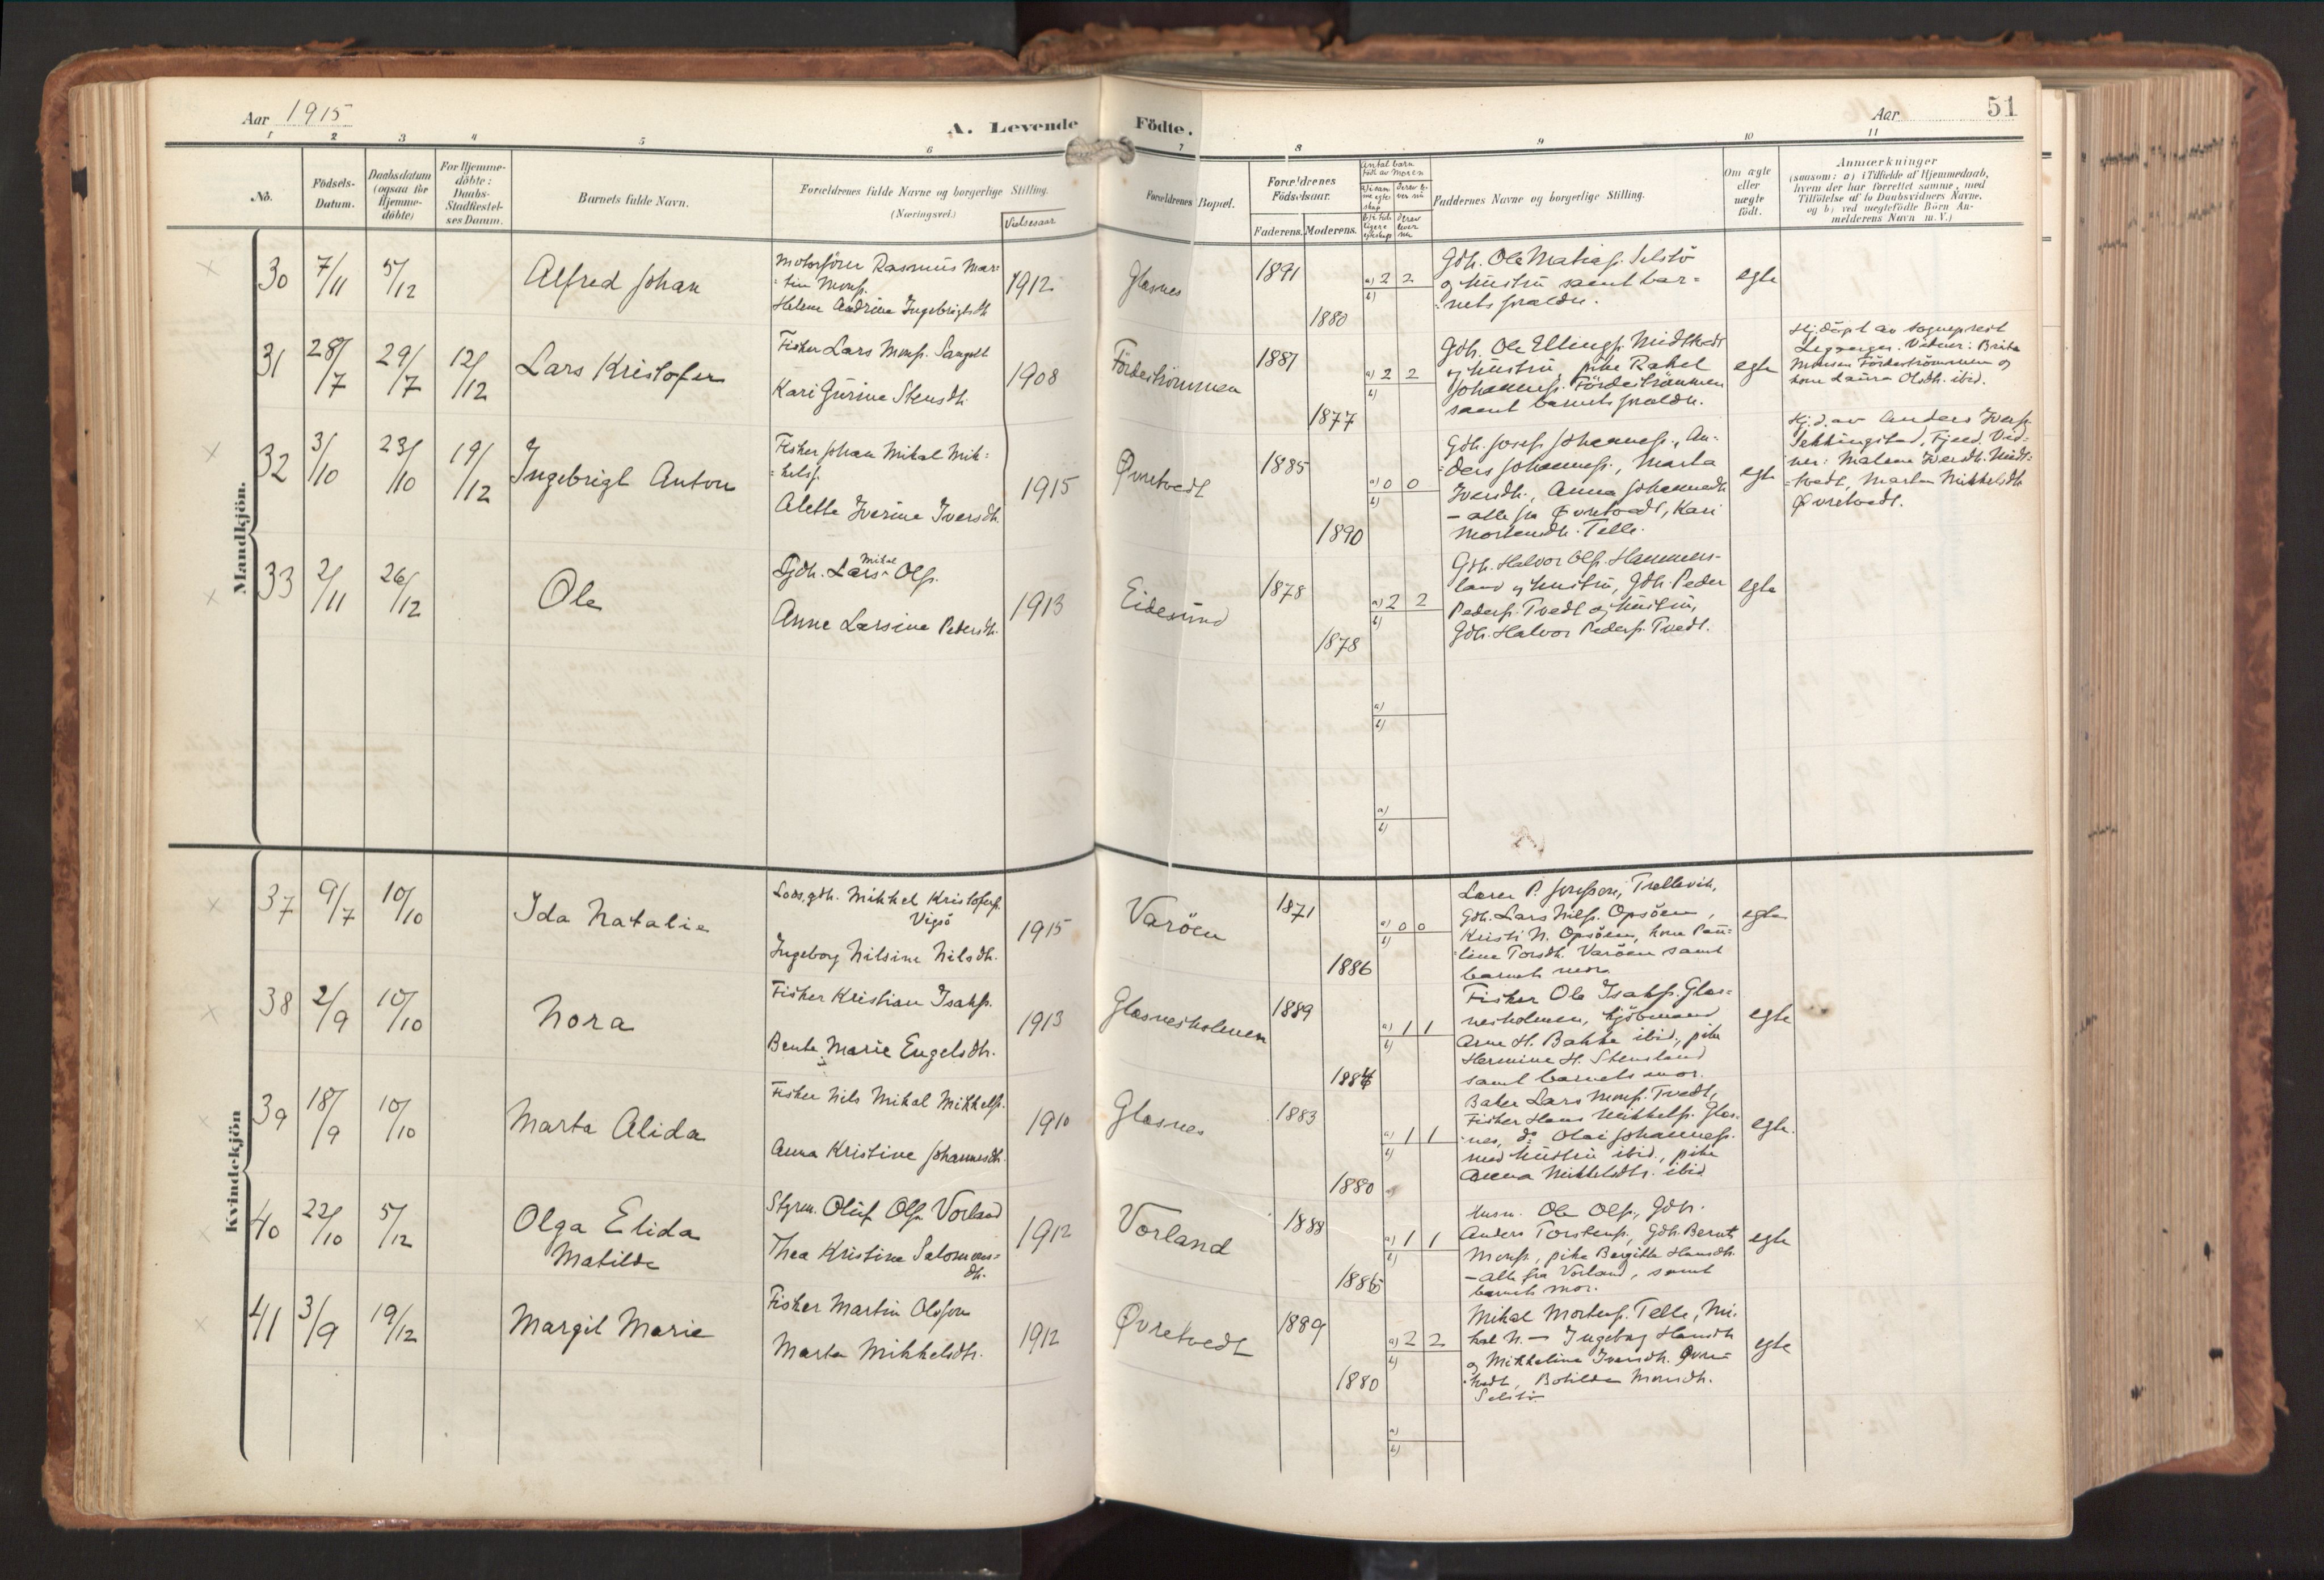 Aar 1915
A. Levende Födte.
Aar 51
1 2 3 4 5 6 7 8 9 10 11
No.
Födsels-
Datum.
Daabsdatum
(ogsaa for
Hjemme-
döbte)
For Hjemme-
döbte:
Daabs-
Stadfæstel-
ses Datum.
Barnets fulde Navn.
Forældrenes fulde Navne og borgerlige Stilling.
(Næringsvei.)
Vielsesaar
Forældrenes Bopæl.
Forældrenes
Födselsaar.
Faderens. Moderens.
Antal barn
født av moren
Faddernes Navne og borgerlige Stilling.
Om ægte
eller
uægte
födt.
Anmærkninger
(saasom: a) i Tilfælde af Hjemmedaab,
hvem der har forrettet samme, med
Tilföielse af to Daabsvidners Navne,
og b) ved uægtefödte Börn An-
melderens Navn m. V.)
Mandkjön.
30 7/11 5/12
Alfred Johan
Motorfører Rasmus Mar=
=tin Monss.
Helene Andrine Ingebrigtsdt.
1912
Glasnes
1891
1880
a) 2 2
b)
Gdb. Ole Matiass. Selstö
og hustru samt bar=
=nets foreldre.
egte
31 28/7 29/7 12/12
Lars Kristofer
Fisker Lars Monss. Sangolt
Kari Gurine Stensdt.
1908
Fördeströmmen
1881
1877
a) 2 2
b)
Gdb. Ole Ellings. Midttvedt
og hustru, pike Rakel
Johanness. Fördeströmmen
samt barnets foreldre.
egte
Hj.døpt av sogneprest
Vidner: Brita
Monsen Fördeströmmen og
kone Laura Olsdt. ibid.
32 3/10 23/10 19/12
Ingebrigt Anton
Fisker Johan Mikal Mik=
=kels.
Alette Iverine Iversdt.
1915
Øvretvedt
1885
1890
a) 0 0
b)
Gdb. Josef Johanness., An-
ders Johanness., Marta
Iversdt., Anna Johannesdt.
– alle fra Øvretvedt, Kari
Mortensdt. Telle.
egte
Hj.d. av Anders Ivers.
Sekkingstad, Fjeld. Vid-
ner: Malene Iversdt. Midt=
=tvedt, Marta Mikkelsdt.
Øvretvedt.
33 2/11 26/12
Ole
Gdb. Lars Mikal Ols.
Anne Larsine Pedersdt.
1913
Eidesund
1878
1878
a) 2 2
b)
Gdb. Halvor Ols. Hammers-
land og hustru, Gdb. Peder
Peders. Tvedt og hustru,
Gdb. Halvor Peders. Tvedt.
egte
a)
b)
a)
b)
Kvindekjön
37 9/7 10/10
Ida Natalie
Lods, gdb. Mikkel Kristofers.
Vigsö
Ingeborg Nilsine Nilsdt.
1915
Varöen
1871
1886
a) 0 0
b)
Lærer P. Trellevik,
Gdb. Lars Nils. Opsöen,
Kristi N. Opsöen, kone Pau-
=line Torsdt. Varöen samt
barnets mor.
egte
38 2/9 10/10
Nora
Fisker Kristian Isaks.
Bente Marie Engelsdt.
1913
Glasnesholmen
1889
1884
a) 1 1
b)
Fisker Ole Isaks. Glas=
nesholmen, kjöbmand
Arne H. Bakke ibid., pike
Hermine H. Stensland
samt barnets mor.
egte
39 18/9 10/10
Marta Alida
Fisker Nils Mikal Mikkels.
Anna Kristine Johannesdt.
1910
Glasnes
1883
1880
a) 1 1
b)
Baker Lars Monss. Tvedt,
Fisker Hans Mikkels. Glas-
nes, do Olai Johanness.
med hustru ibid., pike
Anna Mikkelsdtr. ibid.
egte.
40 22/10 5/12
Olga Elida
Matilde
Styrm. Oluf Ols. Vorland
Thea Kristine Salomons=
dt.
1912
Vorland
1888
1885
a) 1 1
b)
Husm. Ole Ols., Gdb.
Anders Torstens., Gdb. Bernt
Monss., pike Bergitte Hansdt.
– alle fra Vorland, samt
barnets mor.
egte
41 3/9 19/12
Margit Marie
Fisker Martin Olsson
Marta Mikkelsdt.
1912
Øvretvedt
1889
1880
a) 2 2
b)
Mikal Mortens. Telle, Mi-
kal N. – Ingeborg Hansdt.
og Mikkeline Iversdt. Øvre=
=tvedt, Botilde Monsdt.
Selstö.
egte
a)
b)